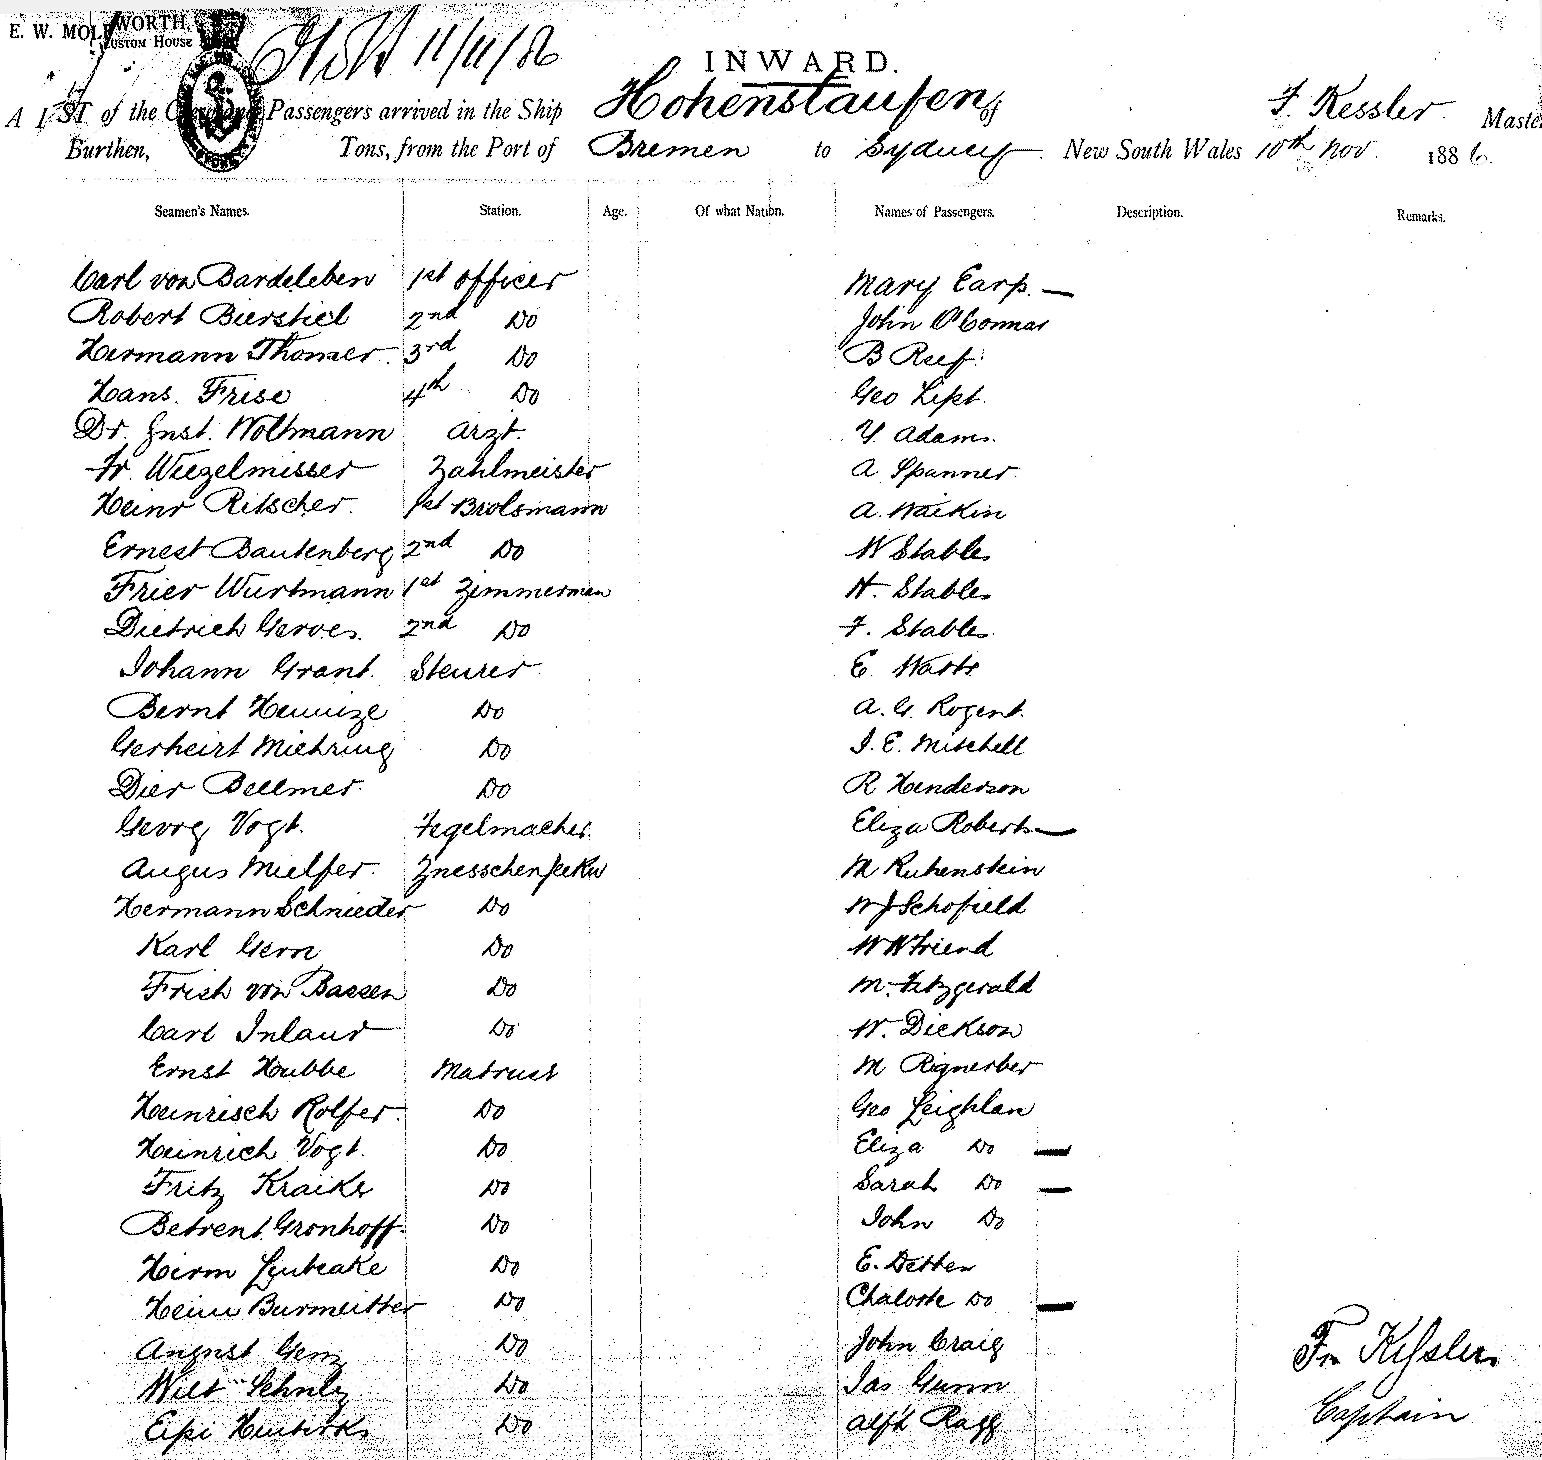 E. W. MOLESWORTH,
CUSTOM HOUSE
11/11/86
INWARD.
A LIST of the Crew and Passengers arrived in the Ship Hohenstaufen of F. Kessler Master
Burthen, Tons, from the Port of Bremen to Sydney New South Wales 10th Nov. 1886.
Seamen's Names. Station. Age. Of what Nation. Names of Passengers. Description. Remarks.
Carl von Bardeleben 1st Officer Mary Earp. —
Robert Bierstiel 2nd Do John O'Connor
Hermann Thomer 3rd Do B Reef
Hans. Frise 4th Do Geo Lipt.
Dr. Gust. Woltmann Arzt. Y. Adams.
Fr. Wiezelmisser Zahlmeister A Spanner
Heinr Ritscher. 1st Brolsmann A. Waikin
Ernest Bautenberg 2nd Do W Stables
Frier Wurtmann 1st Zimmerman H. Stables
Dietrich Gerves. 2nd Do F. Stables.
Johann Grant. Steurer E Watts
Bernt Heminze Do A. G. Rogent.
Gerheirt Miehring Do J. E. Mitchell
Dier Bellmer. Do R Henderson
Georg Vogt. Fegelmacher. Eliza Roberts —
Augus Mielfer. M Rubenstein
Hermann Schnieder Do W J Schofield
Karl Gern Do W W Friend
Frich von Bassen Do M. Fitzgerald
Carl Inlaur Do W. Dickson
Ernst Hubbe Matrues M Rignerber
Heinrisch Rolfer. Do Geo Leighlan
Heinrich Vogt. Do Eliza Do —
Fritz Kraike Do Sarah Do —
Betrent Gronhoff. Do John Do
Herm Lyubeake Do E. Detten
Heini Burmeitter Do Chalotte Do —
August Genz Do John Craig
Wilt Schulz Do Jas Gunn
Do Alfd Ragg
Fr. Kessler
Captain